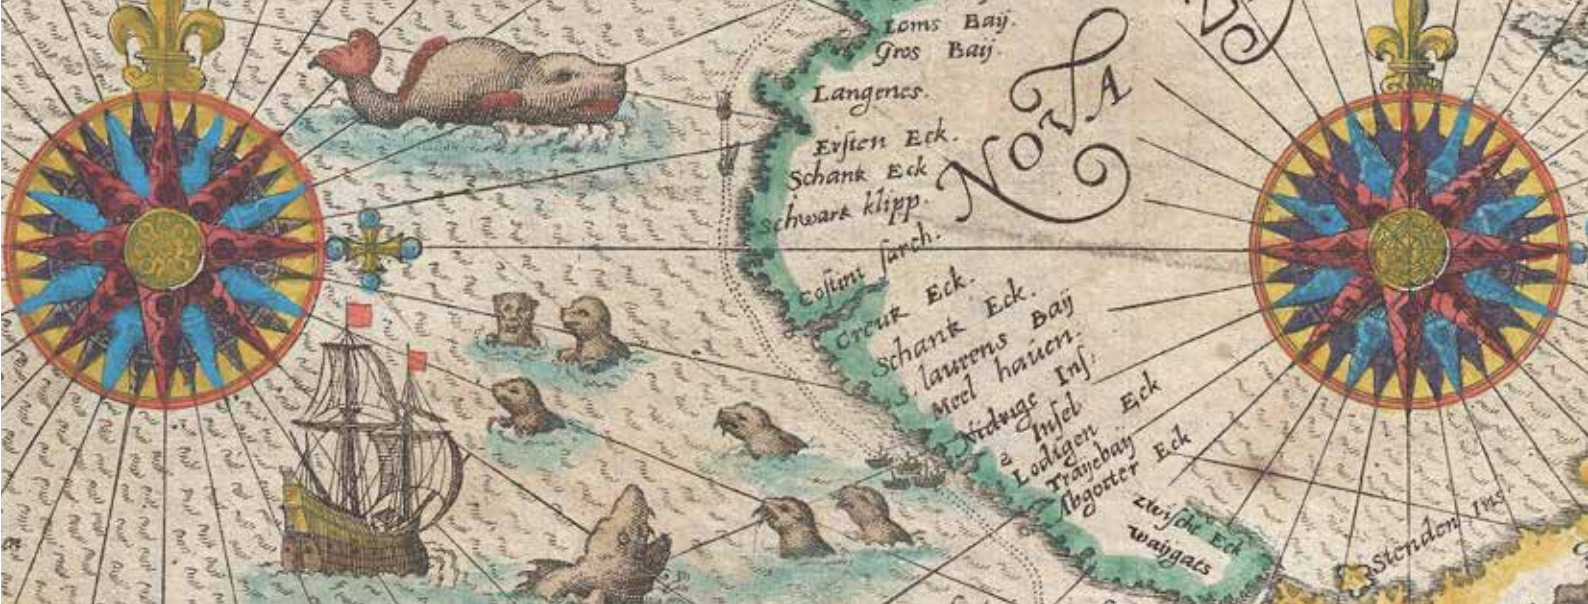 Loms Baÿ.
Gros Baÿ.
Langenes.
Erſten Eck.
Schank Eck
Schwark klipp.
Coſtint ſarch.
Creuk Eck.
Schank Eck.
laurens Baÿ
Meel hauen.
Nidrige Inſ:
2 Inſel
Lodigen Eck
Traÿebaÿ
Abgotter Eck
zwiſchē Eck
Waÿgats
NOVA
Stenden Inſ